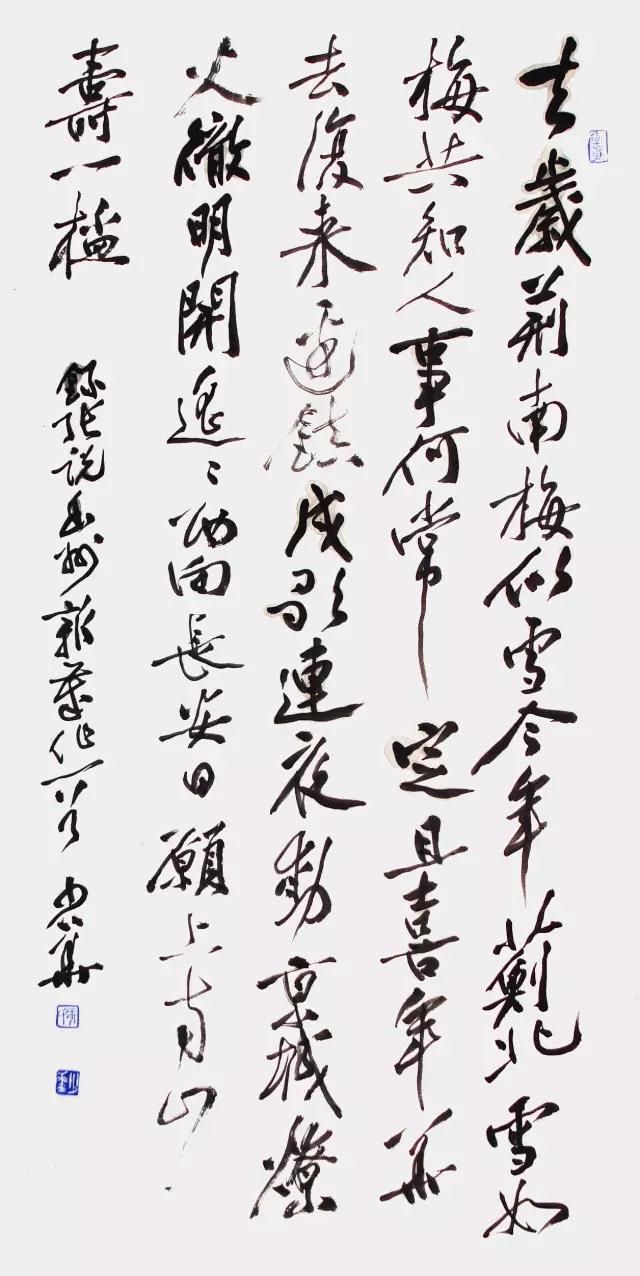 去歲荊南梅似雪今年薊北雪如
梅共知人事何常定且喜年華
去復来邊鎮戍歌連夜動京城燎
火徹明開遙々西向長安日願上南山
壽一杯
錄張說幽州新歲作一首 少華